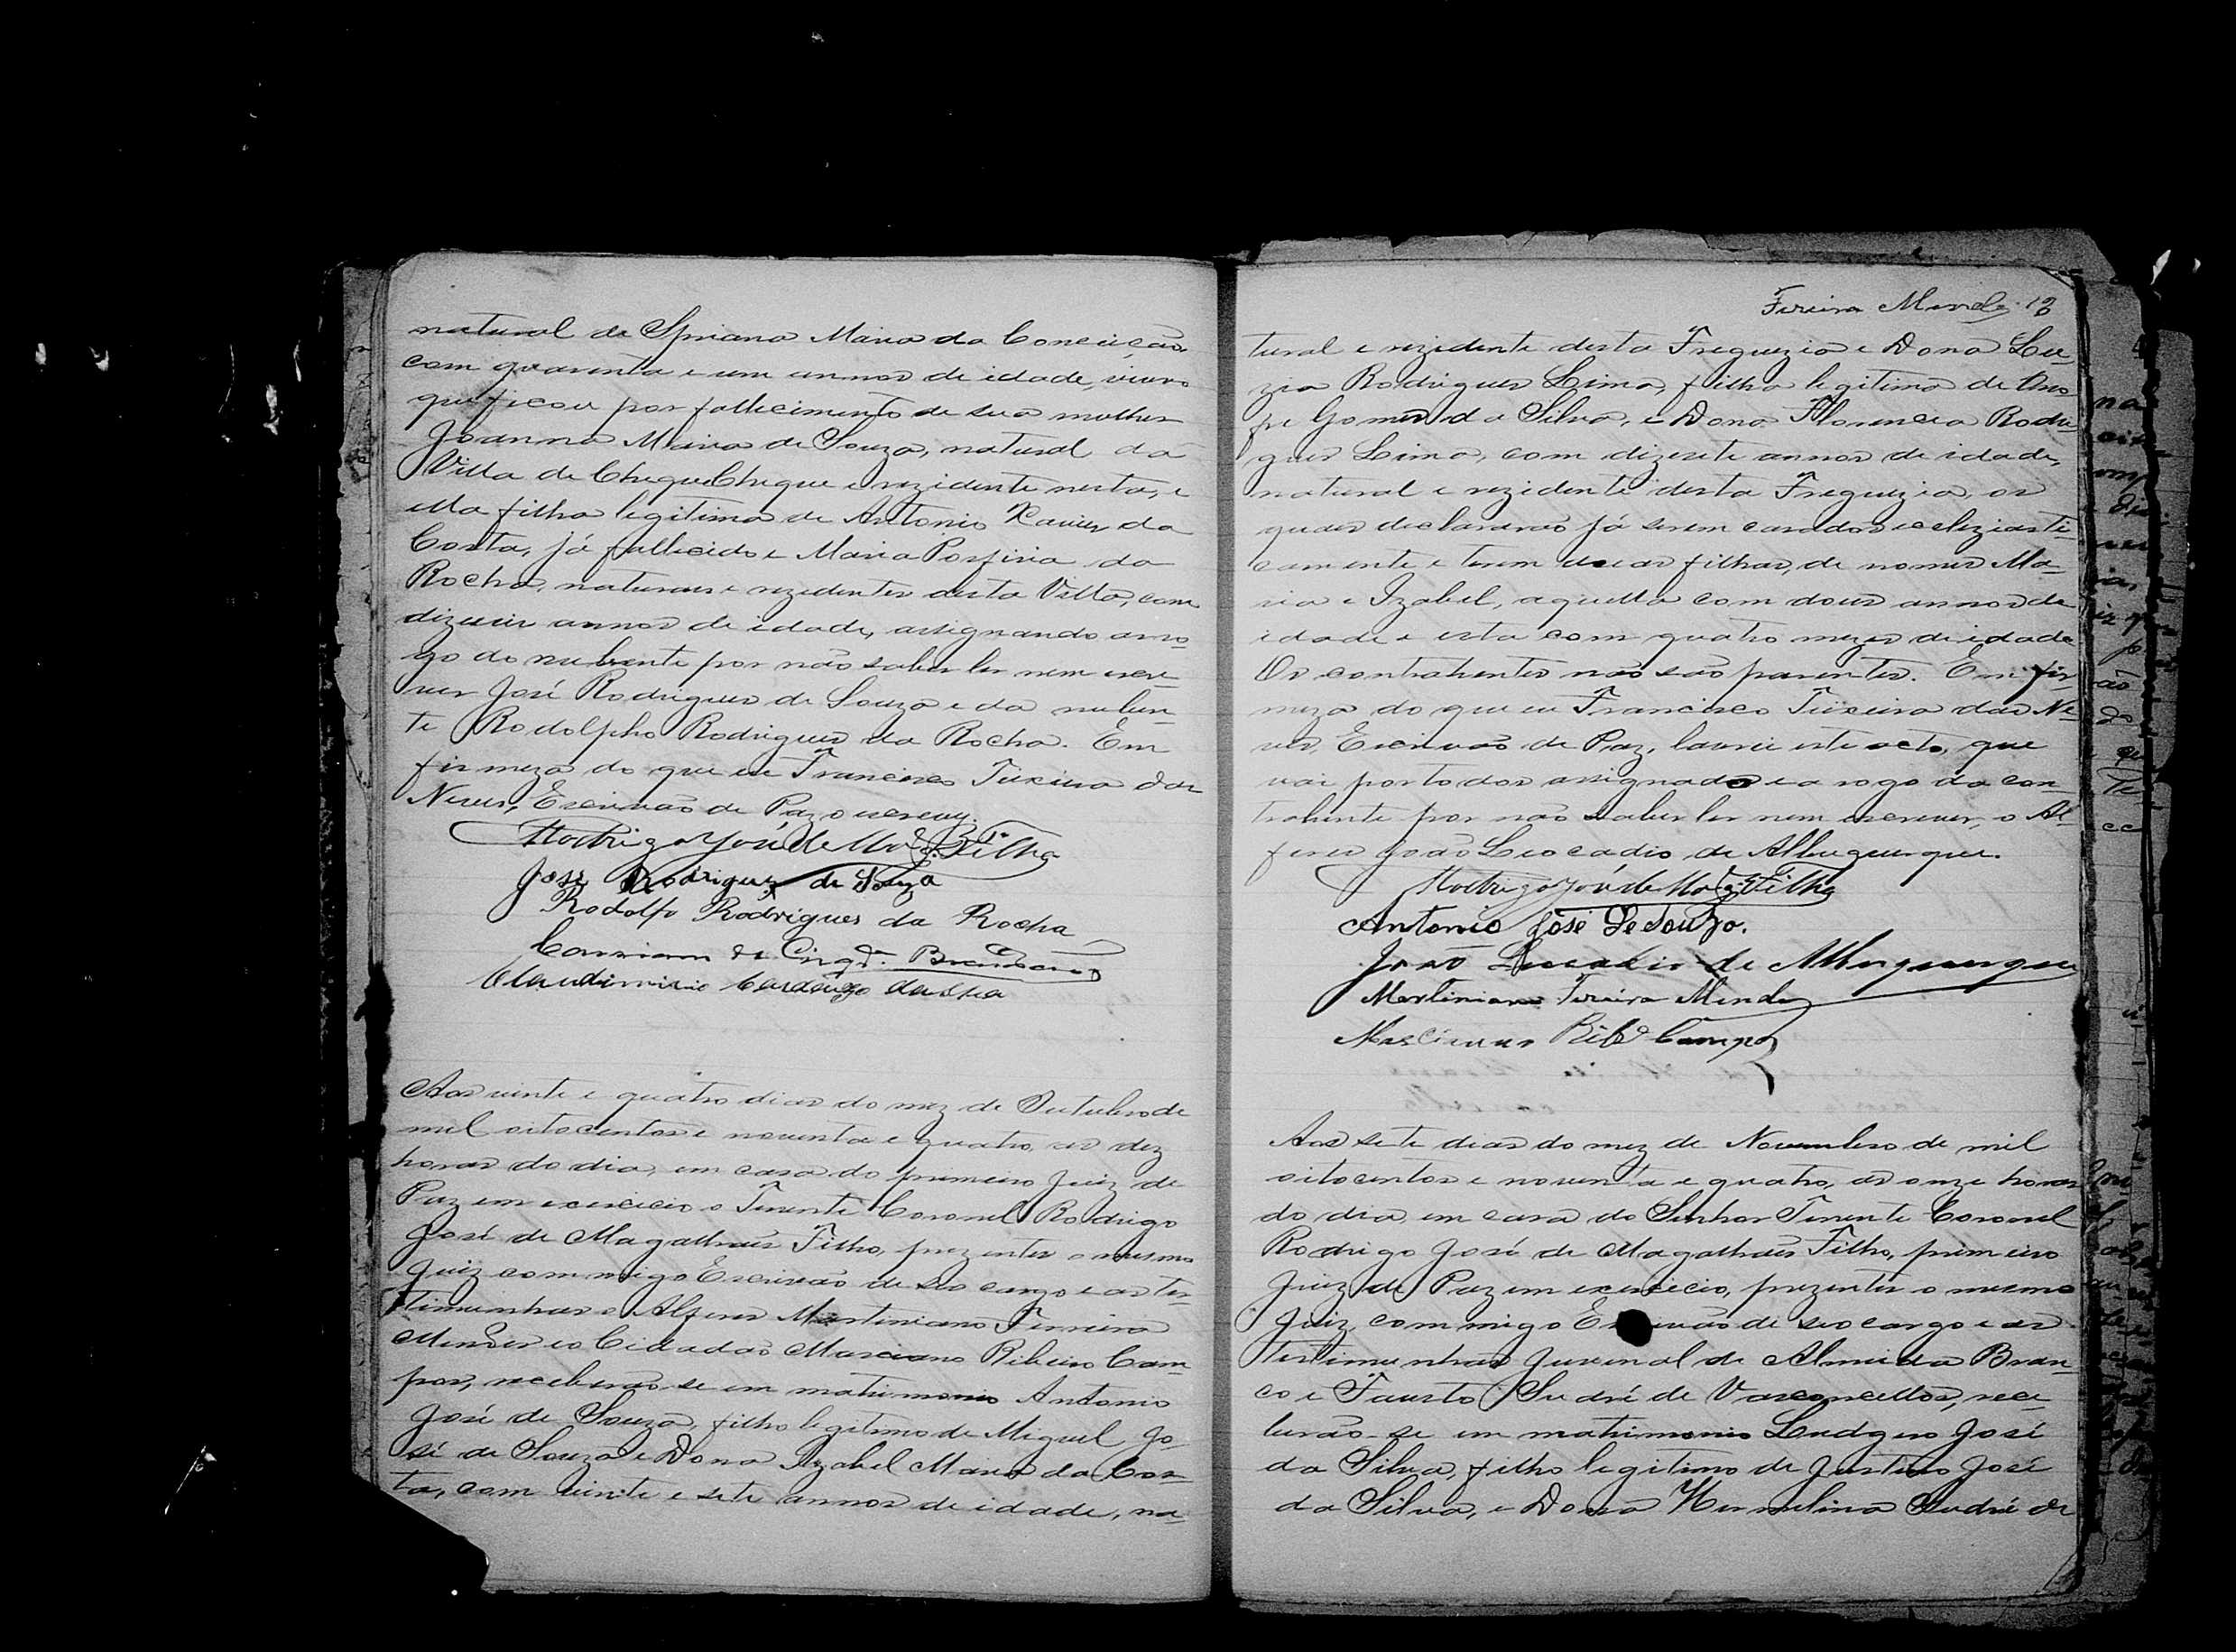 natural de Spriana Maria da Conceição
com quarenta e um annos de idade, viuvo
que ficou por fallecimento de sua mulher
Joanna Maria de Souza, natural da
Villa de Chique Chique e rezidente nesta, e
ella filha legitima de Antonio Xavier da
Costa, já fallecido e Maria Porfiria da
Rocha, naturaes e rezidentes desta Villa, com
dizeseis annos de idade, assignando a ro-
go do nubente por não saber ler nem escre-
ver José Rodrigues de Souza e da nuben-
te Rodolpho Rodrigues da Rocha. Em
firmeza do que eu Francisco Teixeira das
Neves, Escrivão de Paz o escrevy.
Rodrigo José de Mag.es Filho
José Rodrigues de Souza
Rodolfo Rodrigues da Rocha
Claudimirio Cardozo da
Aos vinte e quatro dias do mez de Outubro de
mil oitocentos e noventa e quatro, as dez
horas do dia, em casa do primeiro Juiz de
Paz em exercicio o Tenente Coronel Rodrigo
José de Magalhães Filho, prezentes o mesmo
Juiz commigo Escrivão de seo cargo e as tes-
timunhas o Alferes Martiniano Ferreira
Mendes e o Cidadão Marciano Ribeiro Cam-
pos, receberão-se em matrimonio Antonio
José de Souza, filho legitimo de Miguel Jo-
sé de Souza e Dona Izabel Maria da Cos-
ta, com vinte e sete annos de idade, na-
Fereira Mendes 12
tural e rezidente desta Freguezia e Dona Lu-
zia Rodrigues Lima, filha legitima de Ono
fre Gomes da Silva, e Dona Florencia Rodri-
gues Lima, com dizesete annos de idade,
natural e rezidente desta Freguezia, os
quaes declararão já serem casados ecleziasti-
camente e terem duas filhas, de nomes Ma-
ria e Izabel, aquella com dous annos de
idade e esta com quatro mezes de idade
Os contrahentes não são parentes. Em fir-
meza do que eu Francisco Teixeira das Ne-
ves, Escrivão de Paz, lavrei este acto, que
vai por todos assignado e a rogo da con-
trahente por não saber ler nem escrever, o Al-
feres João Leocadio de Albuquerque.
Rodrigo José de Mag.es Filho
Antonio José De Souza.
João Leocadio de Albuquerque
Martiniano Fereira Mendes
Marciano Ribr.o Campos
Aos sete dias do mez de Novembro de mil
oitocentos e noventa e quatro, as onze horas
do dia, em casa do Senhor Tenente Coronel
Rodrigo José de Magalhães Filho, primeiro
Juiz de Paz em exercicio, prezentes o mesmo
Juiz, commigo Escrivão de seo cargo e as
testimunhas Juvenal de Almeida Bran-
co e Fausto Sudré de Vasconcellos, rece-
berão-se em matrimonio Ludgero José
da Silva, filho legitimo de Justino José
da Silva, e Dona Hermelina Sudré de